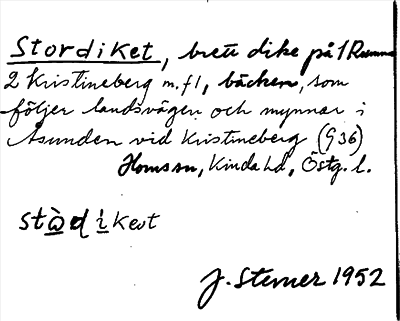 Stordiket, brett dike på 1 Rumma
2 Kristineberg m.fl, bäcken, som
följer landsvägen och mynnar i
Åsunden vid Kristineberg (G36)
Kinda hd, Östg. l.
J. Sterner 1952